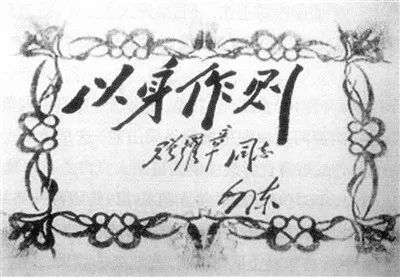 以身作则
耀章同志